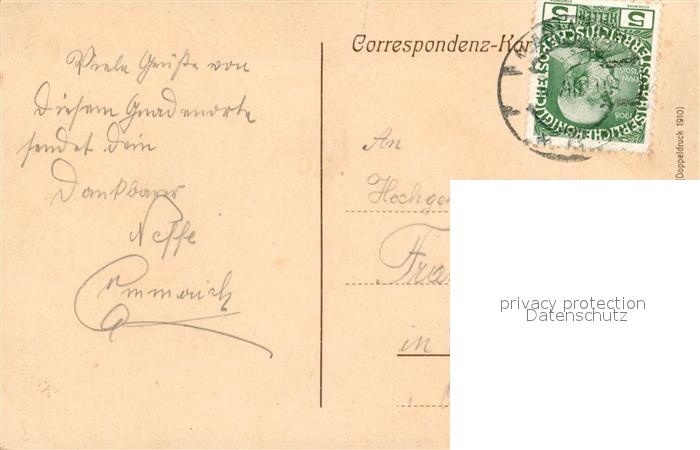 Correspondenz-Kar
Viele Grüße von
diesem Gnadenorte
sendet dein
Dankbarer
Neffe
Emmerich
An
Hochge
Fra
in
5 HELLER 5
1908
(Doppeldruck 1910)
privacy protection
Datenschutz